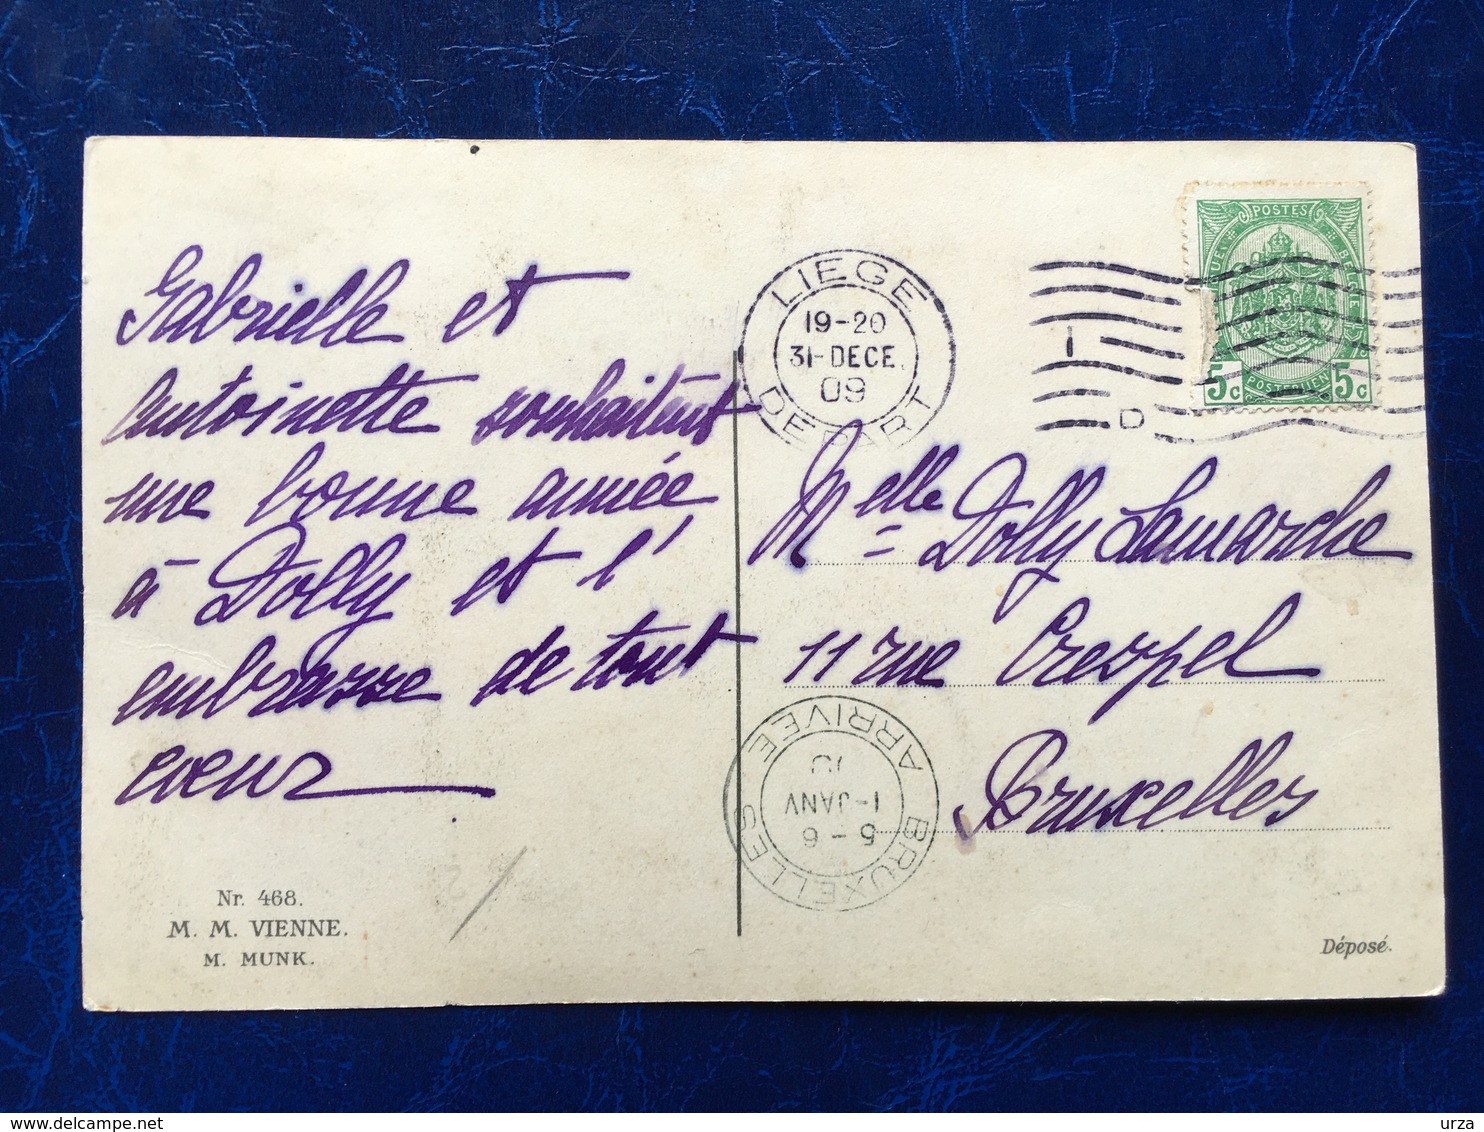 Gabrielle et
Antoinette souhaitent
une bonne année
à Dolly et l'
embrasse de tout
coeur
Nr. 468.
M. M. VIENNE.
M. MUNK.
LIEGE
19-20
31-DECE.
09
DEPART
1
D
POSTES
BELGIQUE
5c POSTERIJEN 5c
Melle Dolly Lamarche
11 rue Crespel
Bruxelles
BRUXELLES
5-6
1-JANV
10
ARRIVEE
Déposé.
urza